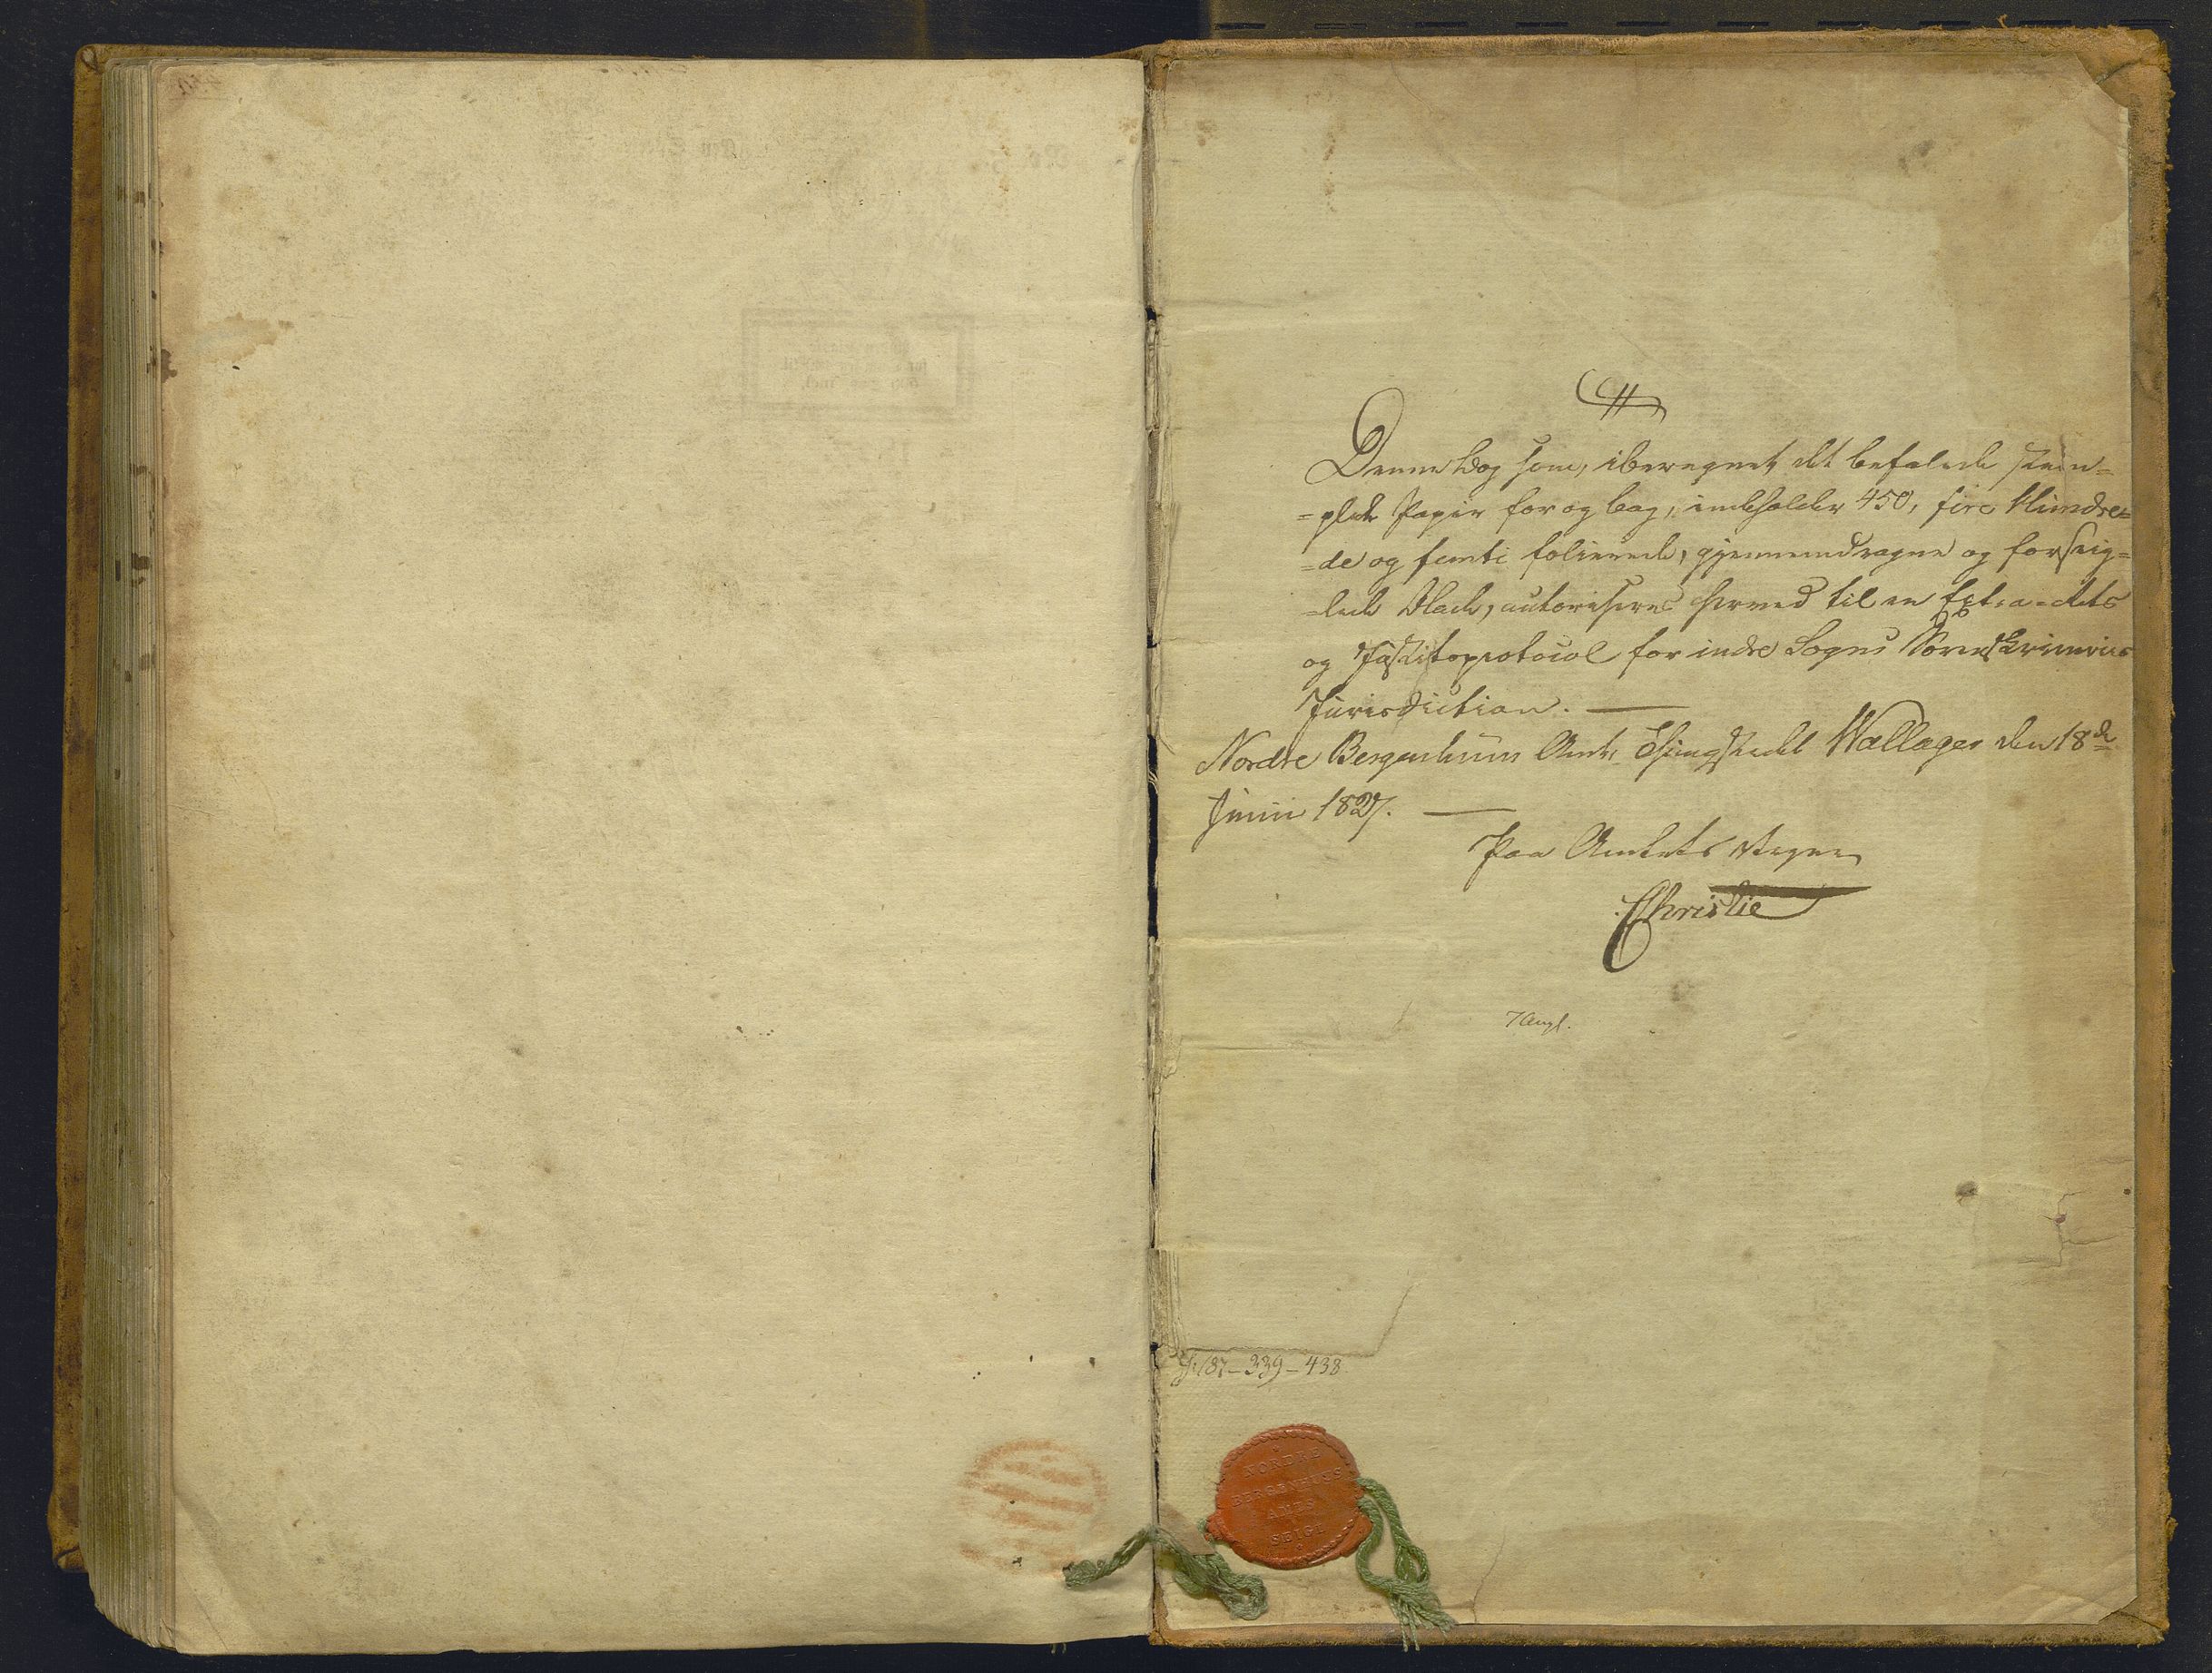 Denne Bog som, iberegnet det befalede stem=
=plede Papir for og bag, indeholder 450, fire Hundre=
=de og femti folierede, gjennemdragne og forseig=
=lede Blade, autoriseres herved til en Extra-Rets
og Justitsprotocol for indre Sogns Sorenskriveries
Jurisdiction. —
Nordre Bergenhuus Amt, Thingstedet Wollager den 18de
Junii 1827. —
Paa Amtets Vegne
Christie
187–339–438
NORDRE
BERGENHUSS
AMTS
SEIGL